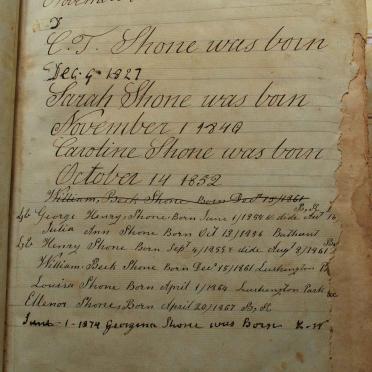 November
C. T. Shone was born
Dec. 9 1827
Sarah Shone was born
November 1 1840
Caroline Shone was born
October 14 1852
William Beek Shone Born Decr 15/1861
George Henry Shone Born June 1/1854 & dide Augt 14
Julia Ann Shone Born Oct 13, 1856 Bathurst
Henry Shone Born Sept 4/1858 & dide Augt 8/1861
William Beek Shone Born Decr 15/1861
Louisa Shone Born April 1/1864 Park
Ellenor Shone, Born April 20/1867
June 1 - 1874 Georgina Shone was Born